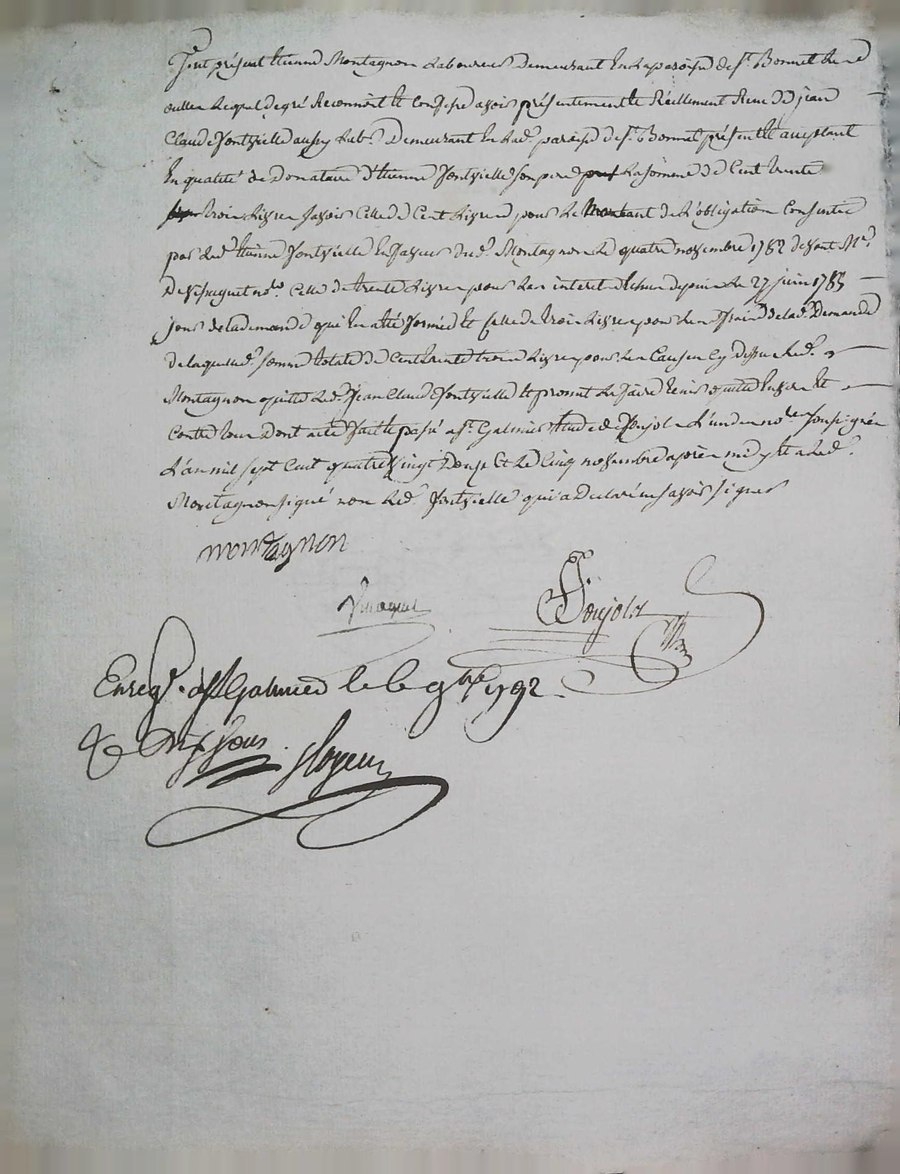 Fut présent Etienne Montagnon Laboureur Demeurant En La paroisse de St. Bonnet Les
oulles Lequel de gré Reconnoit et Confesse avoir présentement et Réellement Reçu de jean
Claude fontvielle aussy Labr. Demeurant En Lad. paroisse de St. Bonnet présent et acceptant
En qualité de Donataire d'Etienne fontvielle son pere La somme de Cent trente
trois Livres savoir Celle de Cent Livres pour Le Montant de L'obligation Consentie
par Led. Etienne fontvielle En faveur dud. Montagnon Le quatre novembre 1782 devant Me.
not.re Celle de trente Livres pour Les interets Echus depuis Le 27 juin 1785
jour de La demande qui En a été formée et Celle de trois Livres pour Les frais de lad. Demande
de laquelle somme totale de Cent trente trois Livres pour Les Causes Cy dessus Led.
Montagnon quitte Led. Jean Claude fontvielle et promet Le faire tenir quitte Envers Et
Contre tous Dont acte fait et passé a St. Galmier Etude de Poujola L'un des no.res soussignés
L'an mil sept Cent quatre vingt Douze Et Le Cinq novembre après midy et a Led.
Montagnon signé non Led. fontvielle qui a Déclaré ne savoir signer
montagnon
Poujola
Enreg. à St Galmier le 6 9bre 1792
sous